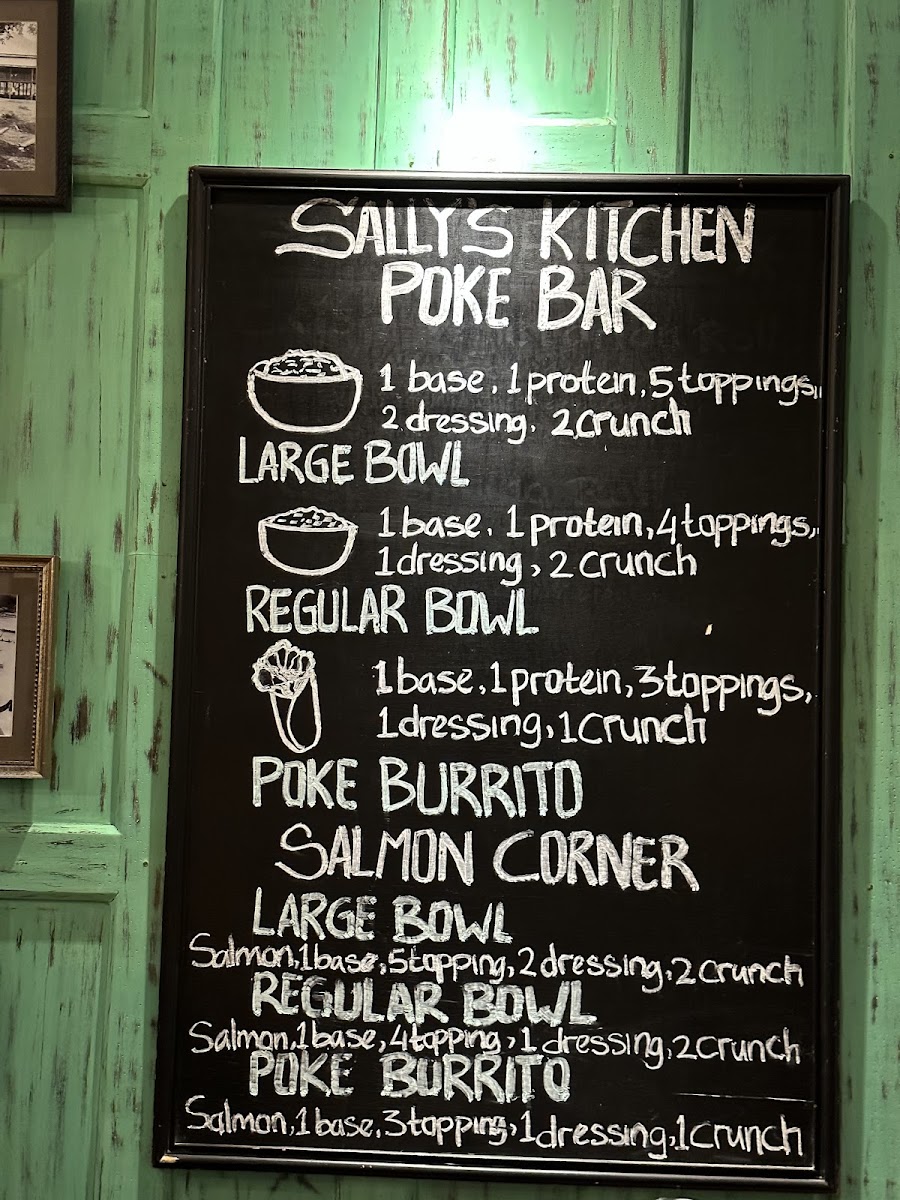 SALLY'S KITCHEN
POKE BAR
1 base, 1 protein, 5 toppings,
2 dressing, 2 crunch
LARGE BOWL
1 base, 1 protein, 4 toppings,
1 dressing, 2 crunch
REGULAR BOWL
1 base, 1 protein, 3 toppings,
1 dressing, 1 crunch
POKE BURRITO
SALMON CORNER
LARGE BOWL
Salmon, 1 base, 5 topping, 2 dressing, 2 crunch
REGULAR BOWL
Salmon, 1 base, 4 topping, 1 dressing, 2 crunch
POKE BURRITO
Salmon, 1 base, 3 topping, 1 dressing, 1 crunch